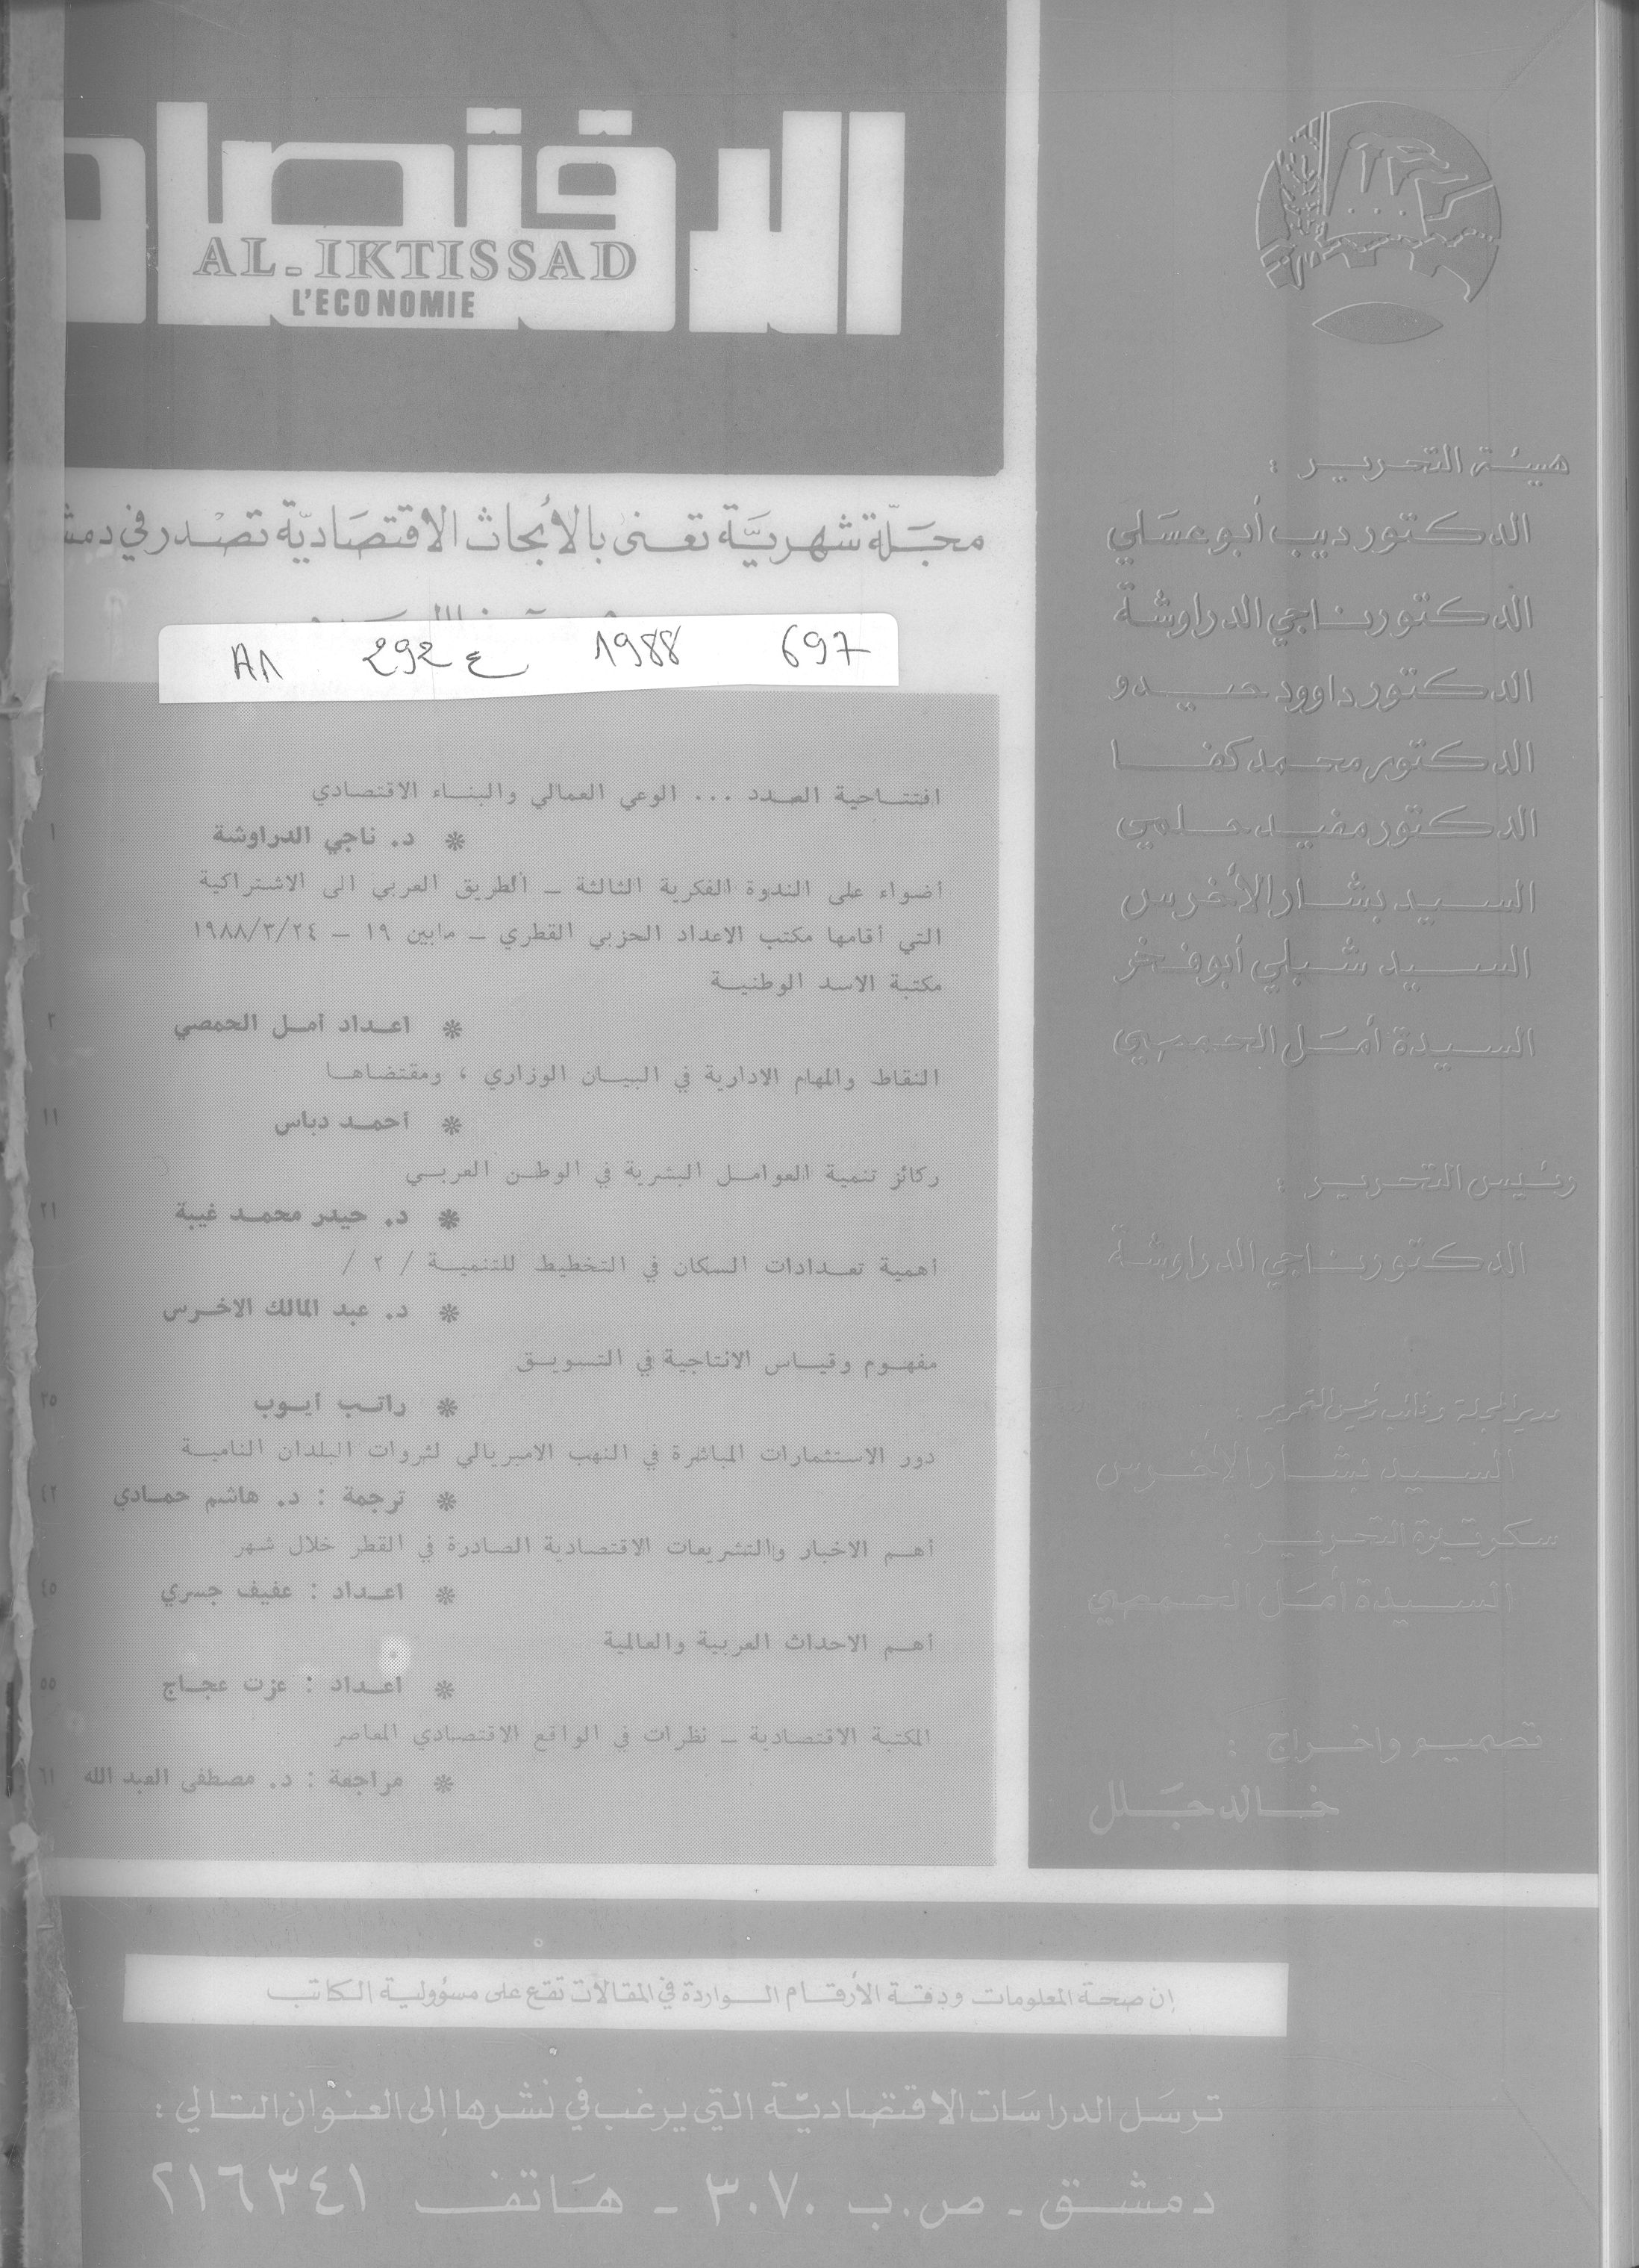 الاقتصاد
AL-IKTISSAD
L'ECONOMIE
مجلة شهرية تعنى بالأبحاث الاقتصادية تصدر في
A1 292 ع 1988 697
افتتاحية العدد ... الوعي العمالي والبناء الاقتصادي
* د. ناجي الدراوشة ١
أضواء على الندوة الفكرية الثالثة ــ الطريق العربي الى الاشتراكية
التي أقامها مكتب الاعداد الحزبي القطري ــ مابين ١٩ ــ ١٩٨٨/٣/٢٤
مكتبة الاسد الوطنية
* اعداد أمل الحمصي ٢
النقاط والمهام الادارية في البيان الوزاري ، ومقتضاها
* أحمد دباس ١١
ركائز تنمية العوامل البشرية في الوطن العربي
* د. حيدر محمد غيبة ٢١
أهمية تعدادات السكان في التخطيط للتنمية / ٢ /
* د. عبد المالك الاخرس
مفهوم وقياس الانتاجية في التسويق
* راتب أيوب ٣٥
دور الاستثمارات المباشرة في النهب الامبريالي لثروات البلدان النامية
* ترجمة : د. هاشم حمادي ٤٢
أهم الاخبار والتشريعات الاقتصادية الصادرة في القطر خلال شهر
* اعداد : عفيف جسري ٤٥
أهم الاحداث العربية والعالمية
* اعداد : عزت عجاج ٥٥
المكتبة الاقتصادية ــ نظرات في الواقع الاقتصادي المعاصر
* مراجعة : د. مصطفى العبد الله ٦١
هيئة التحرير :
الدكتور ديب أبو عسلي
الدكتور ناجي الدراوشة
الدكتور داوود حيدو
الدكتور محمد كفا
الدكتور مفيد حلمي
السيد بشار الأخرس
السيد شبلي أبو فخر
السيدة أمل الحمصي
رئيس التحرير :
الدكتور ناجي الدراوشة
مدير المجلة ونائب رئيس التحرير :
السيد بشار الأخرس
سكرتيرة التحرير :
السيدة أمل الحمصي
تصميم واخراج :
خالد جلل
إن صحة المعلومات ودقة الأرقام الواردة في المقالات تقع على مسؤولية الكاتب
ترسل الدراسات الاقتصادية التي يرغب في نشرها إلى العنوان التالي :
دمشق ـ ص.ب ٣٠٧٠ ـ هاتف ٢١٦٣٤١